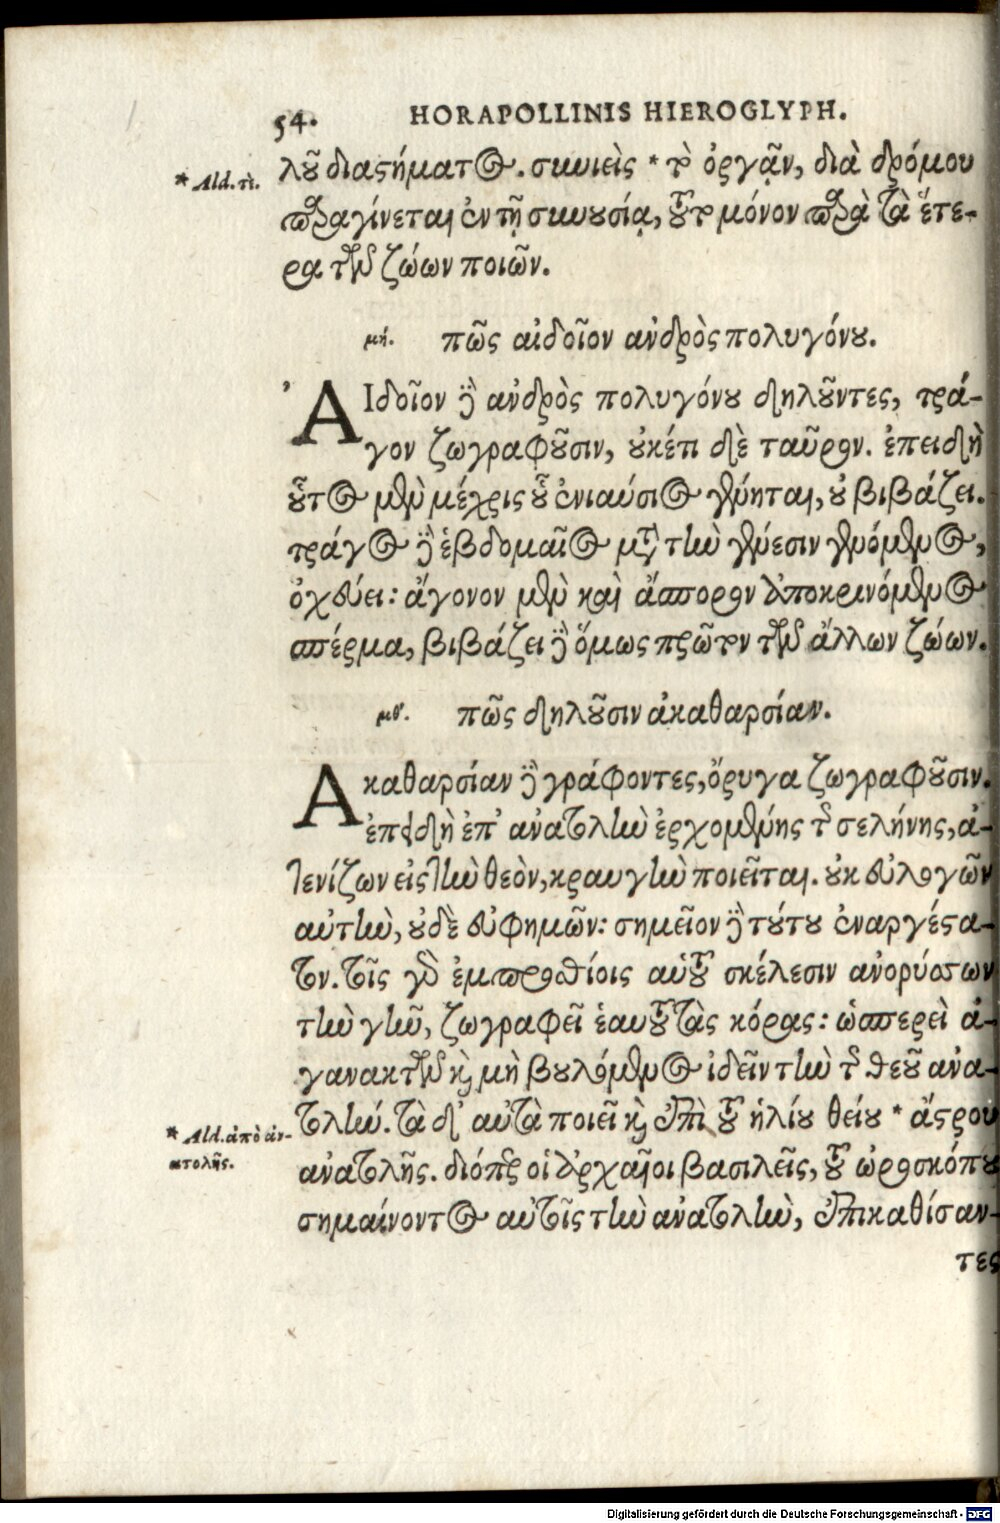 54. HORAPOLLINIS HIEROGLYPH.
* Ald. τὶ.
λοῦ διαστήματος. συνιεὶς * τὸ ὀργᾷν, διὰ δρόμου
παραγίνεται ἐν τῇ συνουσίᾳ, τοῦτο μόνον παρὰ τὰ ἕτε-
ρα τῶν ζώων ποιῶν.
μή. πῶς αἰδοῖον ἀνδρὸς πολυγόνου.
ΑΙδοῖον δὲ ἀνδρὸς πολυγόνου δηλοῦντες, τρά-
γον ζωγραφοῦσιν, οὐκέτι δὲ ταῦρον. ἐπειδὴ
οὗτος μὲν μέχρις οὗ ἐνιαύσιος γένηται, οὐ βιβάζει.
τράγος δὲ ἑβδομαῖος μετὰ τὴν γένεσιν γενόμενος,
ὀχεύει: ἄγονον μὲν καὶ ἄσπορον ἀποκρινόμενος
σπέρμα, βιβάζει δὲ ὅμως πρῶτον τῶν ἄλλων ζώων.
μθ. πῶς δηλοῦσιν ἀκαθαρσίαν.
Ακαθαρσίαν δὲ γράφοντες, ὄρυγα ζωγραφοῦσιν.
ἐπειδὴ ἐπ' ἀνατολὴν ἐρχομένης τῆς σελήνης, ἀ-
τενίζων εἰς τὴν θεὸν, κραυγὴν ποιεῖται. οὐκ εὐλογῶν
αὐτὴν, οὐδὲ εὐφημῶν: σημεῖον δὲ τούτου ἐναργέστα-
τον. τοῖς γὰρ ἐμπροσθίοις αὑτοῦ σκέλεσιν ἀνορύσσων
τὴν γῆν, ζωγραφεῖ ἑαυτοῦ τὰς κόρας: ὡσπερεὶ ἀ-
γανακτῶν καὶ μὴ βουλόμενος ἰδεῖν τὴν τῆς θεοῦ ἀνα-
τολήν. τὰ δ' αὐτὰ ποιεῖ καὶ ἐπὶ τοῦ ἡλίου θείου * ἄστρου
* Ald. ἀπὸ ἀν-
ατολῆς.
ἀνατολῆς. διόπερ οἱ ἀρχαῖοι βασιλεῖς, τοῦ ὡροσκόπου
σημαίνοντος αὐτοῖς τὴν ἀνατολὴν, ἐπικαθίσαν-
τες
Digitalisierung gefördert durch die Deutsche Forschungsgemeinschaft - DFG